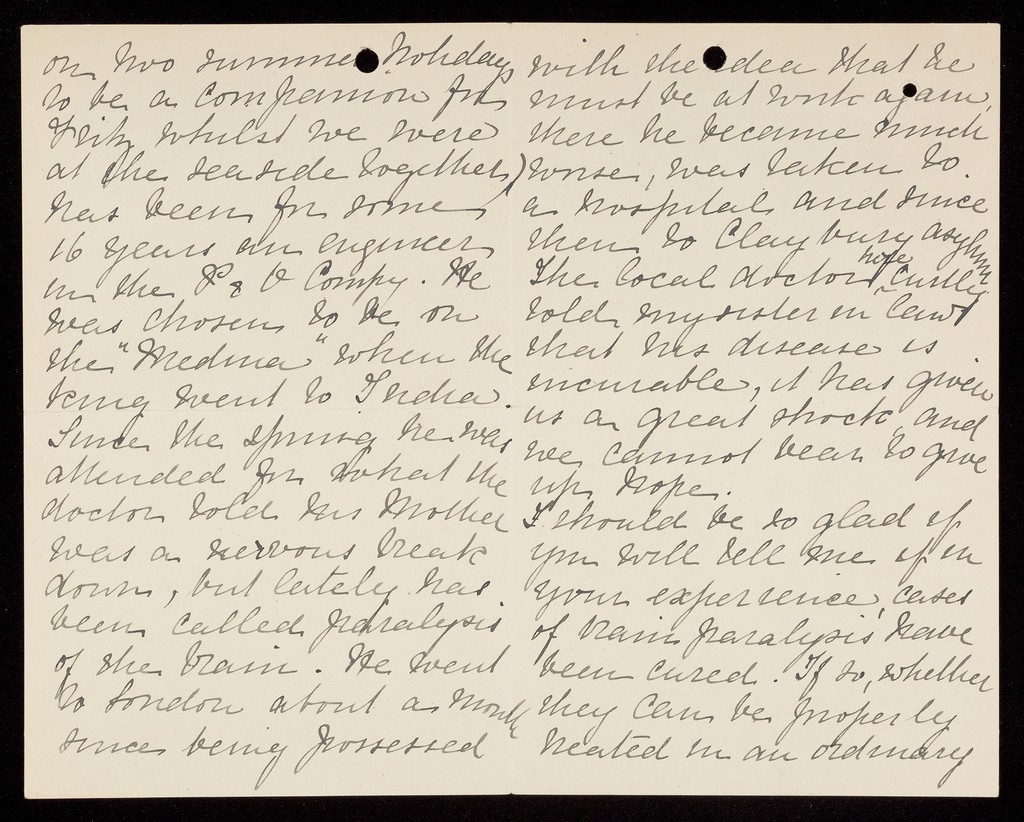 on two summer holidays
to be a companion for
Fritz whilst we were
at the seaside together)
has been for some
16 years an engineer
in the P & O Compy. He
was chosen to be on
the "Medina" when the
king went to India.
Since the spring he was
attended for what the
doctor told his Mother
was a nervous break
down, but lately has
been called paralysis
of the brain. He went
to London about a month
since being possessed
with the idea that he
must be at work again,
there he became much
worse, was taken to
a hospital and since
then to Claybury asylum
The local doctor
told my sister in law
that his disease is
incurable, it has given
us a great shock and
we cannot bear to give
up hope.
I should be so glad if
you will tell me if in
your experience, cases
of brain paralysis have
been cured. If so, whether
they can be properly
treated in an ordinary